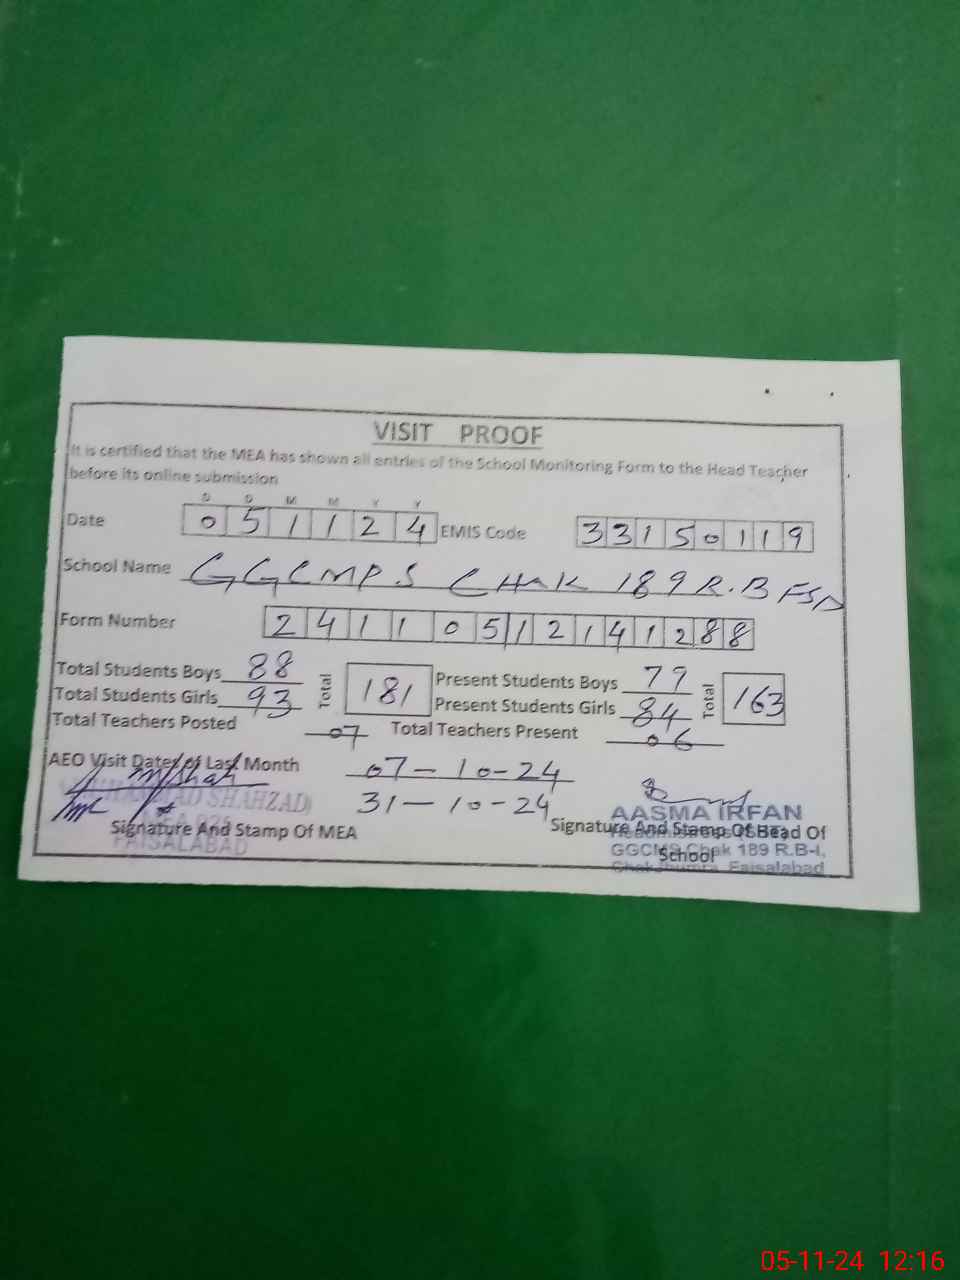 VISIT PROOF
It is certified that the MEA has shown all entries of the School Monitoring Form to the Head Teacher
before its online submission
D D M M Y Y
Date 0 5 1 1 2 4 EMIS Code 3 3 1 5 0 1 1 9
School Name GGCMPS CHAK 189 R.B FSD
Form Number 2 4 1 1 0 5 1 2 1 4 1 2 8 8
Total Students Boys 88 Total 181 Present Students Boys 79 Total 163
Total Students Girls 93 Present Students Girls 84
Total Teachers Posted 07 Total Teachers Present 06
AEO Visit Dates of Last Month 07-10-24
31-10-24
SHAHZAD)
Signature And Stamp Of MEA
FAISALABAD
AASMA IRFAN
Signature And Stamp Of Head Of
School
GGCMS Chak 189 R.B-I,
Faisalabad
05-11-24 12:16